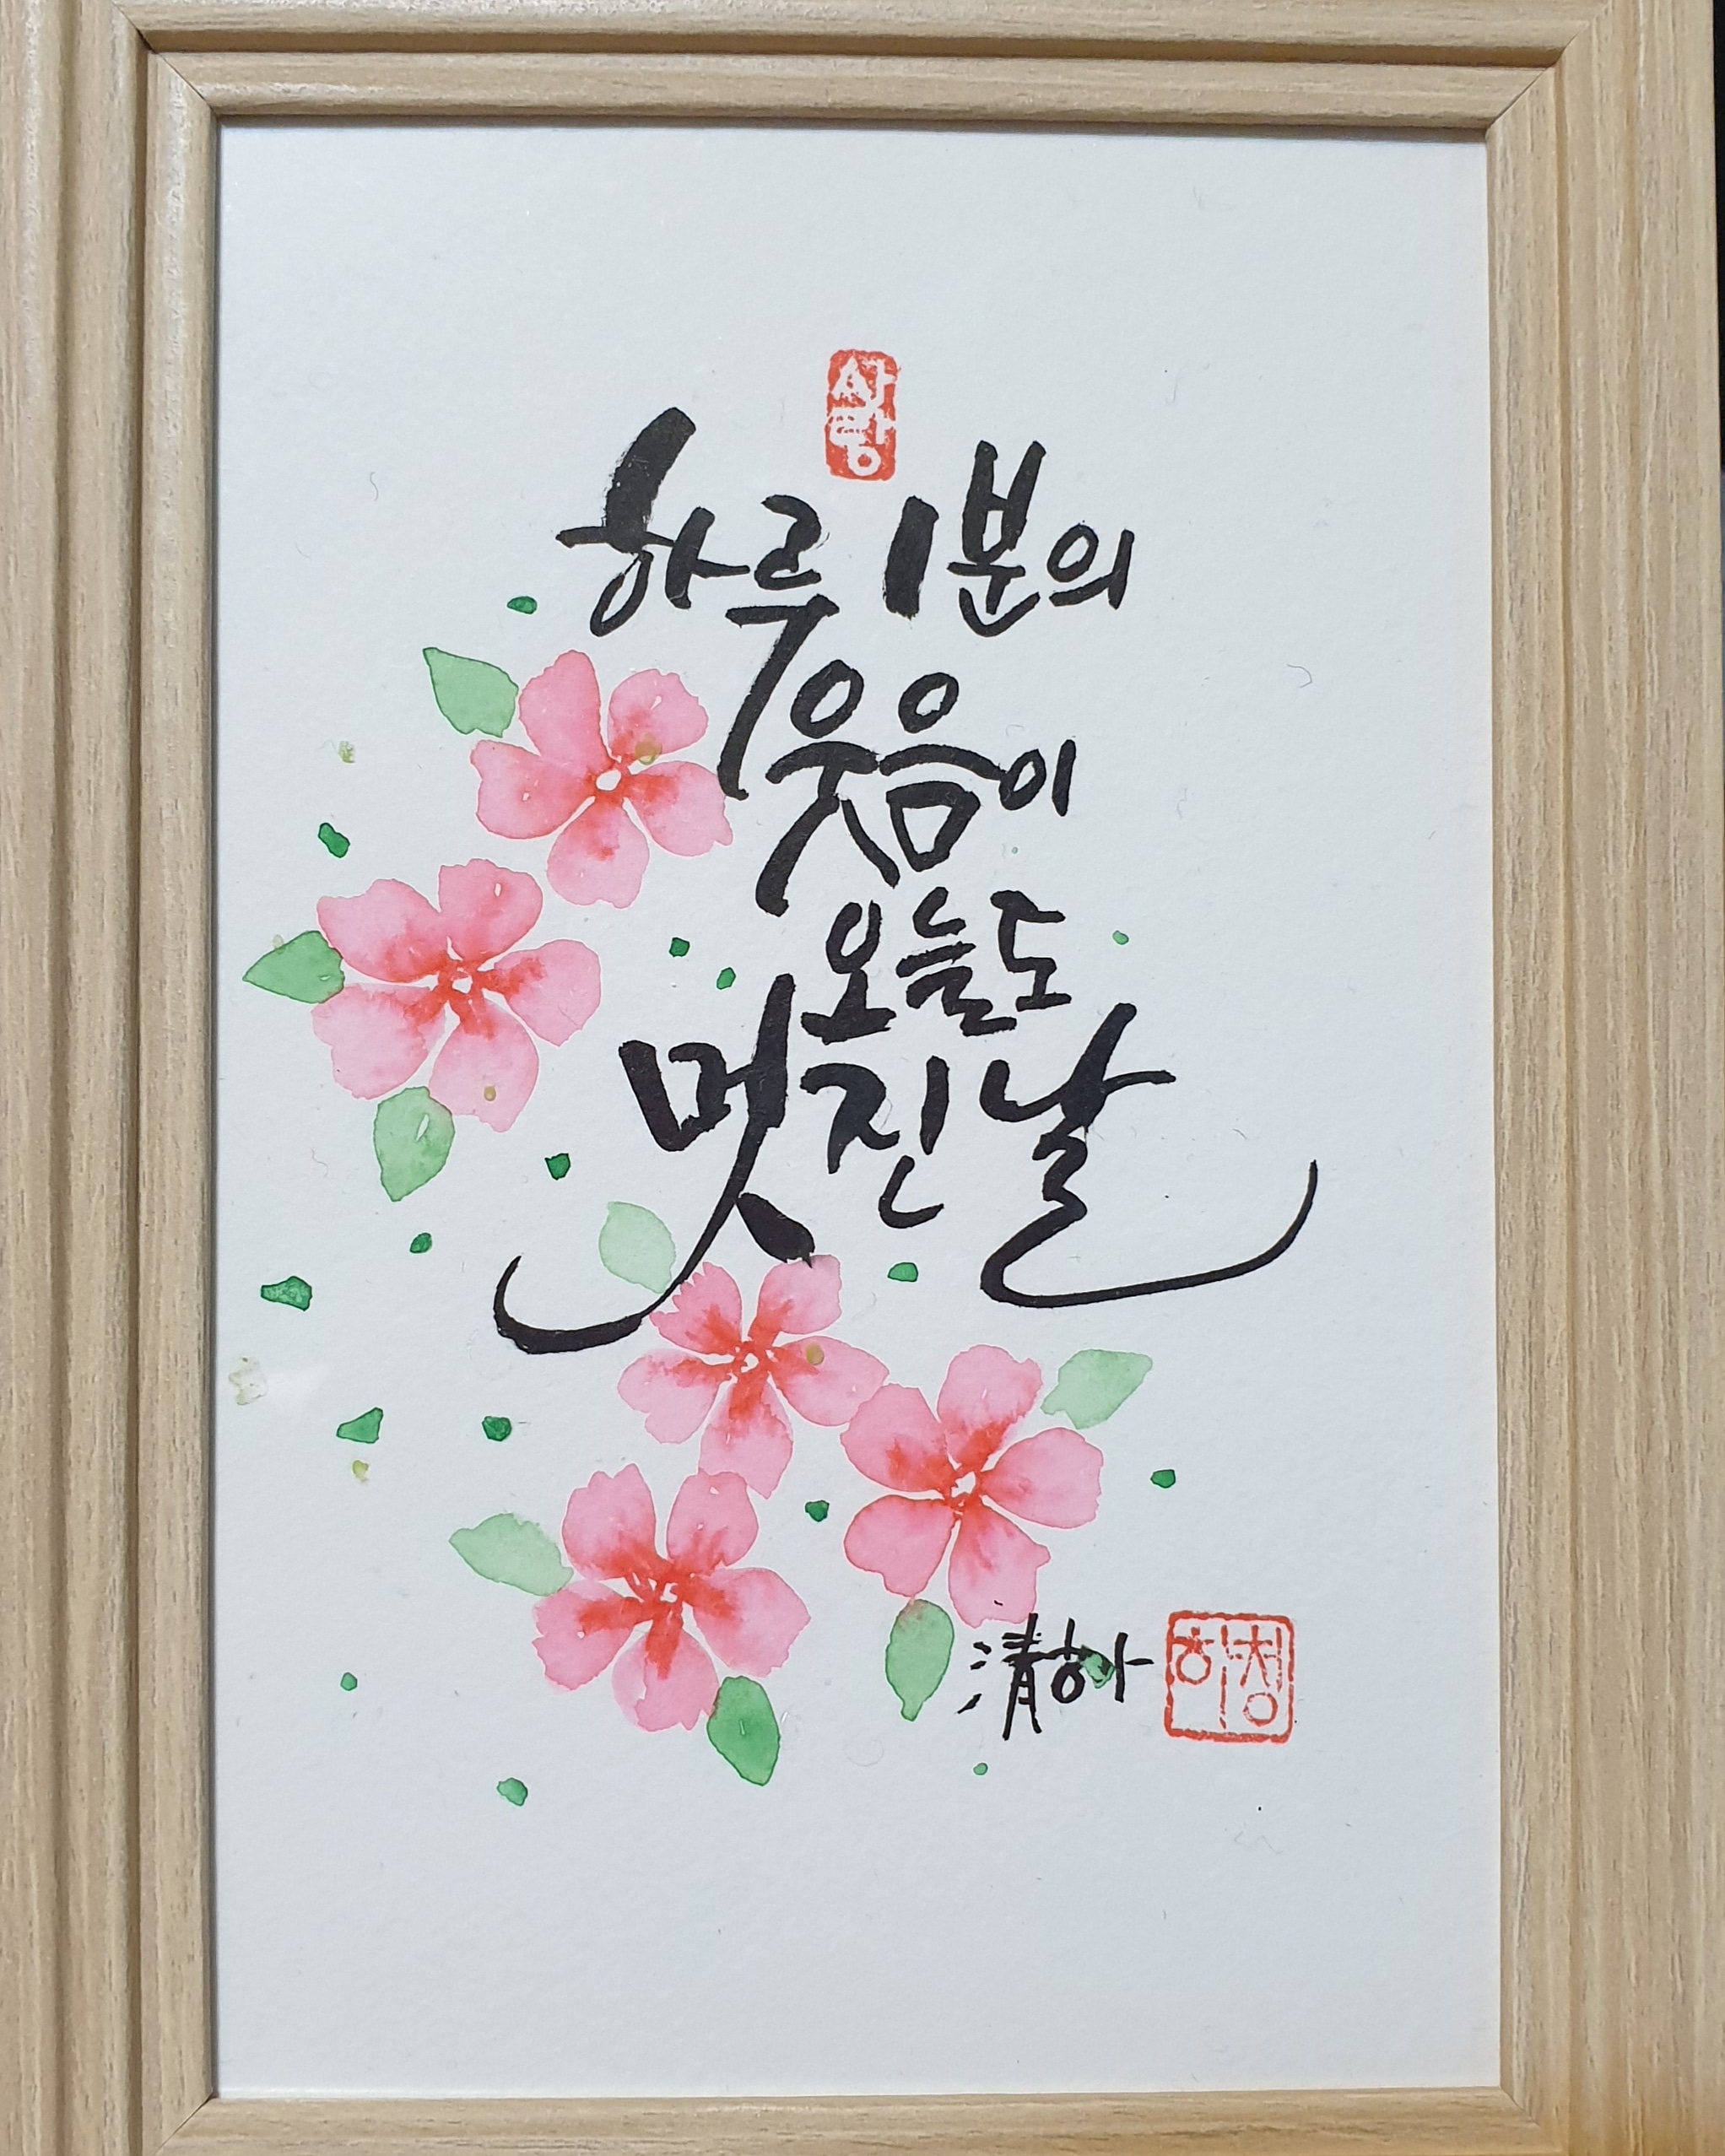 사랑
하루 1분의
웃음이
오늘도
멋진 날
清하
청하